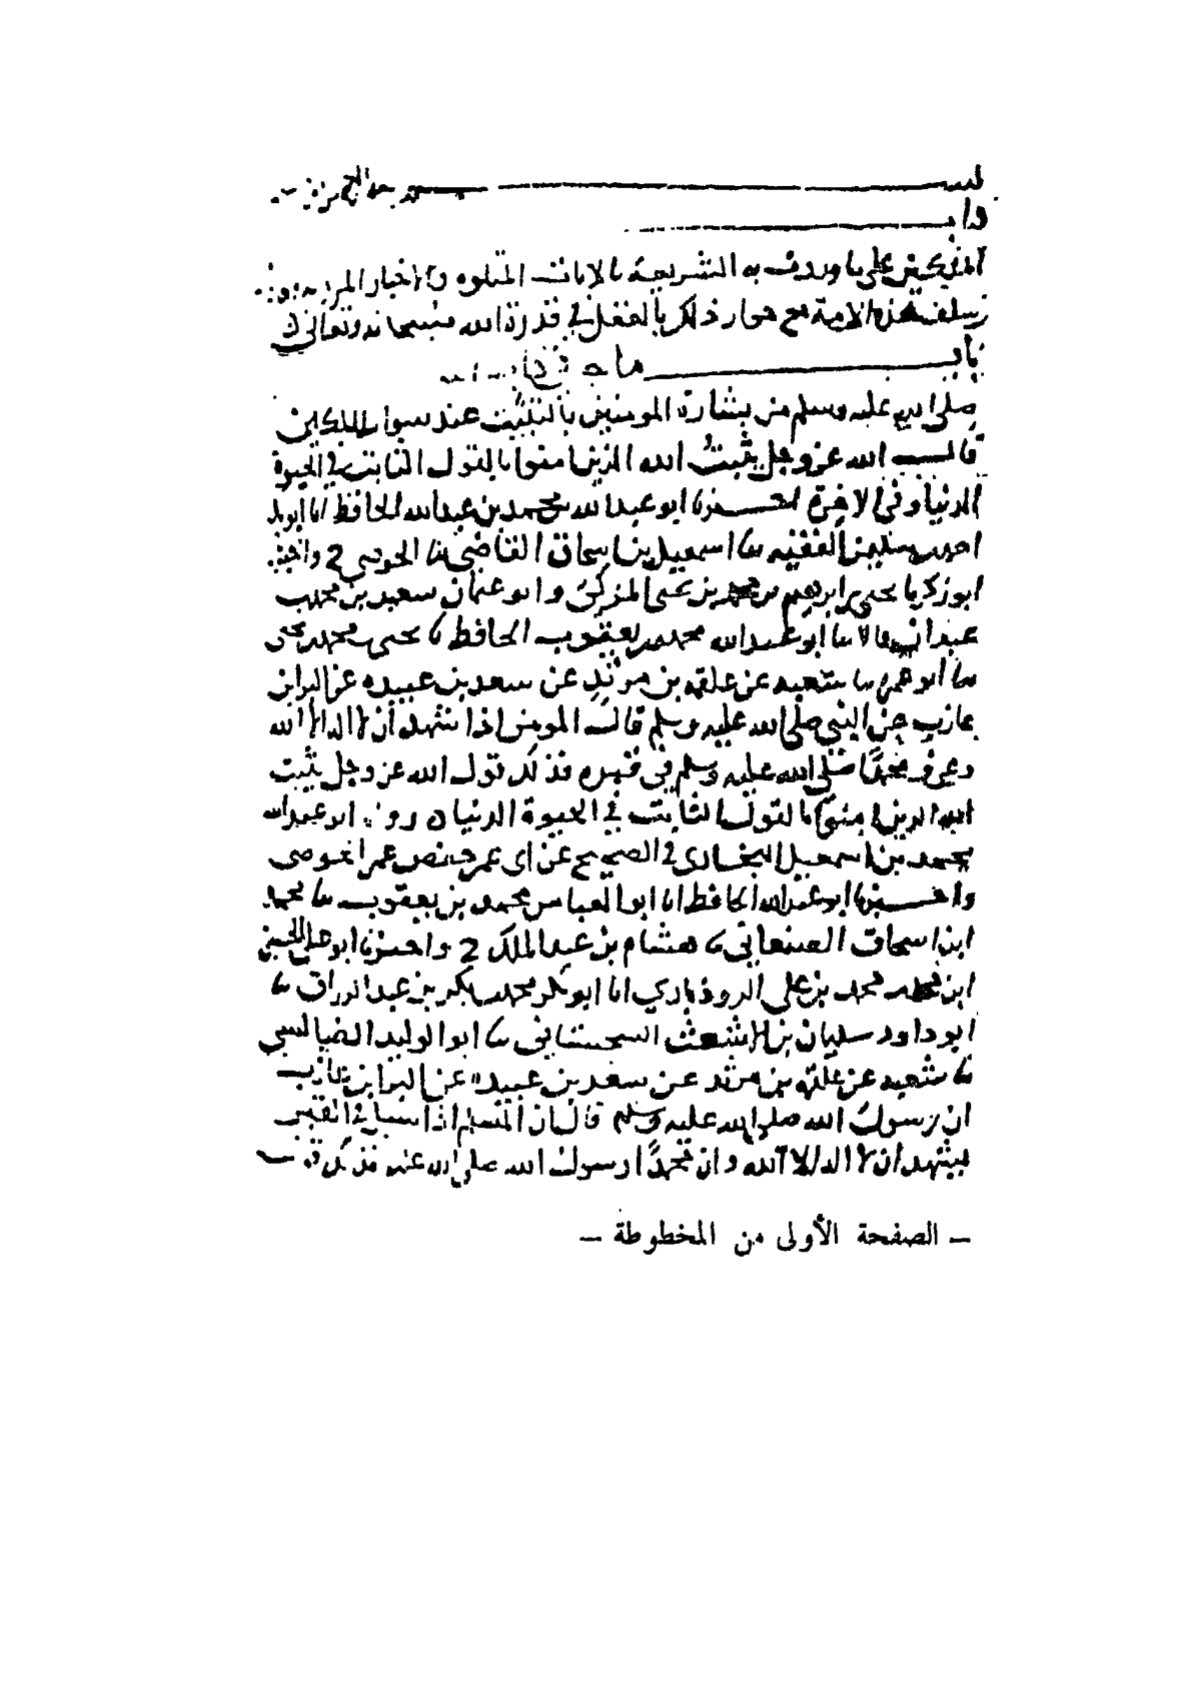 بسم الله الرحمن
باب
المكين على ما وردت به الشريعة بالايات المتلوه والاخبار المرويه
سلف هذه الامة مع جواز ذلك بالعقل في قدرة الله سبحانه وتعالى
باب ما جا
صلى الله عليه وسلم من بشارة المومنين بالتثبيت عند سوال الملكين
قال الله عز وجل يثبت الله الذين امنوا بالقول الثابت في الحيوة
الدنيا وفي الاخرة اخبرنا ابو عبد الله محمد بن عبد الله الحافظ انا ابو بكر
احمد بن سلمن الفقيه سا اسمعيل بن اسحاق القاضي نا الحوضي 2 واخبرنا
ابو زكريا يحيى بن ابرهيم بن محمد بن يحيى المزكي وابو عثمان سعيد بن محمد بن
عبدان قالا سا ابو عبد الله محمد بن يعقوب الحافظ نا يحيى بن محمد بن يحيى
سا ابو عمر سا شعبه عن علقمه بن مرثد عن سعد بن عبيده عن البرا بن
عازب عن النبي صلى الله عليه وسلم قال المومن اذا شهد أن لا اله الا الله
وعرف محمدا صلى الله عليه وسلم في قبره فذلك قول الله عز وجل يثبت
الله الذين امنوا بالقول الثابت في الحيوة الدنيا ٥ رواه ابو عبد الله
محمد بن اسمعيل البخاري في الصحيح عن ابي عمر حفص بن عمر الحوضي
واخبرنا ابو عبد الله الحافظ انا ابو العباس محمد بن يعقوب سا محمد
ابن اسحاق الصنعاني نا هشام بن عبد الملك 2 واخبرنا ابو علي الحسين
ابن محمد بن محمد بن علي الروذباري انا ابو بكر محمد بن بكر بن عبد الرزاق نا
ابو داود سليمان بن الاشعث السجستاني نا ابو الوليد الطيالسي
نا شعبه عن علقمه بن مرثد عن سعد بن عبيده عن البرا بن عازب
ان رسول الله صلى الله عليه وسلم قال ان المسلم اذا سيل في القبر
يشهد ان لا اله الا الله وان محمدا رسول الله صلى الله عليه فذلك
– الصفحة الأولى من المخطوطة –